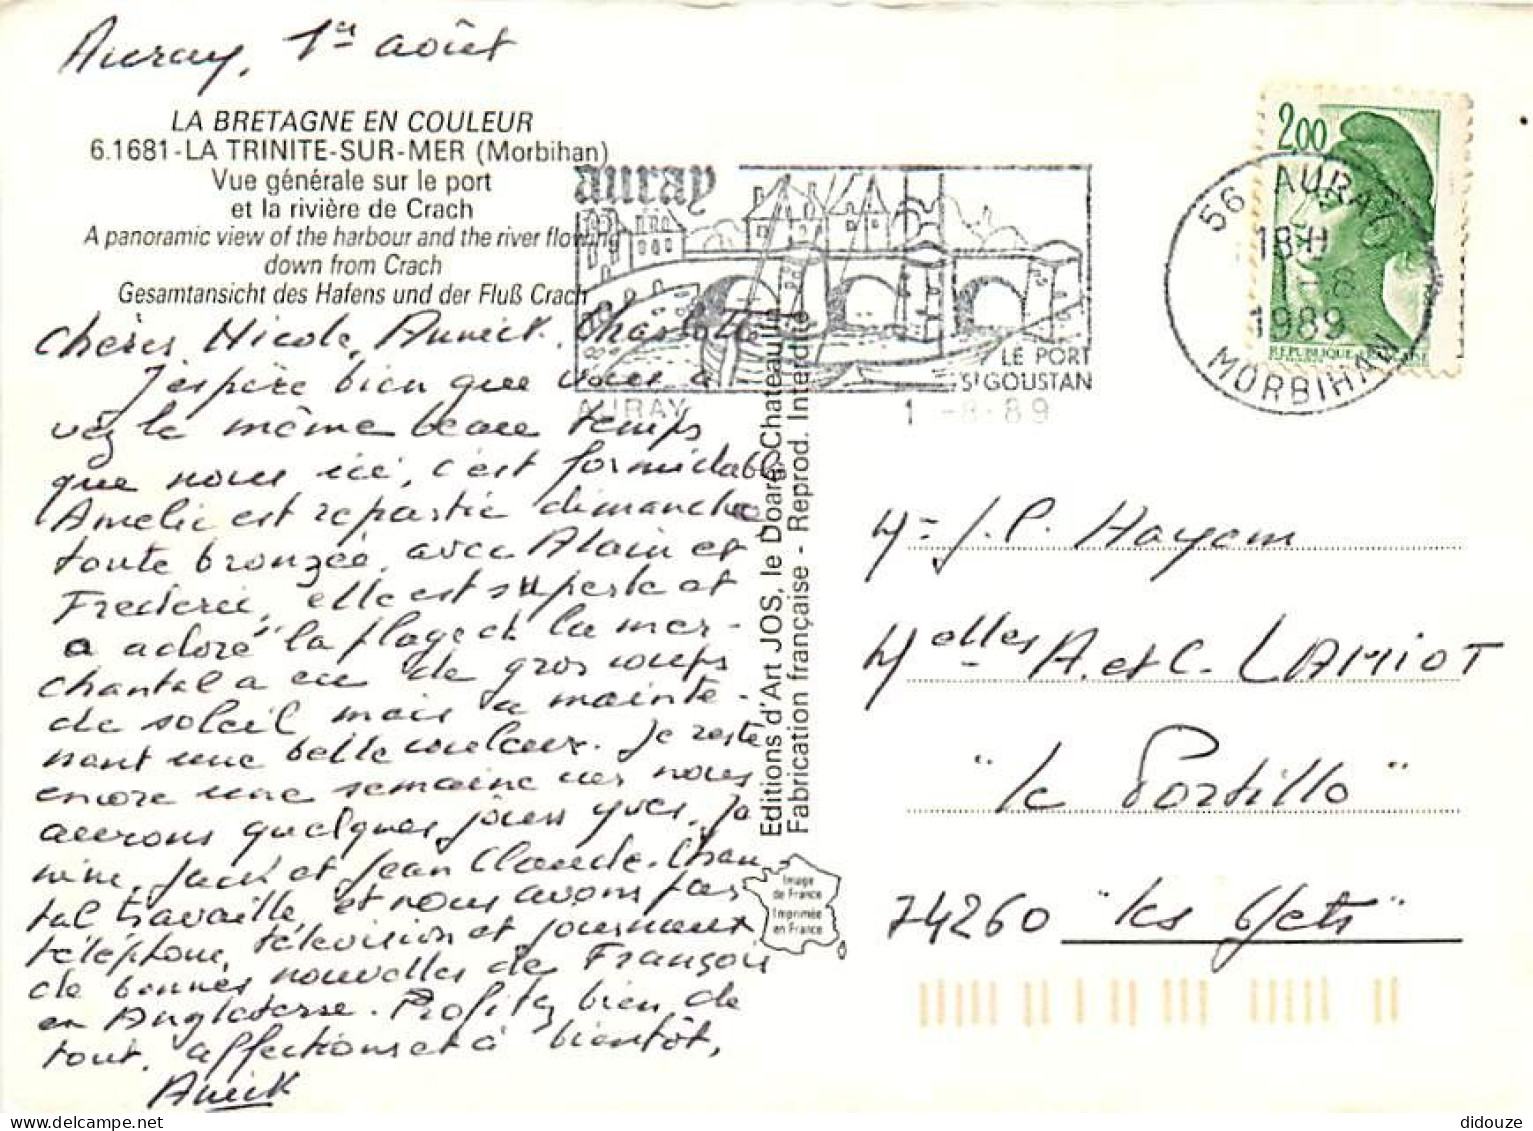 Auray, 1er août
LA BRETAGNE EN COULEUR
6.1681-LA TRINITE-SUR-MER (Morbihan)
Vue générale sur le port
et la rivière de Crach
A panoramic view of the harbour and the river flowing
down from Crach
Gesamtansicht des Hafens und der Fluß Crach
Chères Nicole, Annick, Charlotte
J'espère bien que vous a
vez le même beau temps
que nous ici, c'est formidable
Amelie est repartie dimanche
toute bronzée, avec Alain et
Frederic, elle est superbe et
a adoré la plage et la mer-
Chantal a eu de gros coups
de soleil mais a mainte-
nant une belle couleur. Je reste
encore une semaine nous
aurons quelques jours Yves, Ja
nine, Jack et Jean Claude. Chan
tal travaille, et nous avons pas
téléphone, télévision et journaux
de bonnes nouvelles de François
en Angleterre. Profitez bien de
tout, affections et à bientôt,
Annick
Editions d'Art JOS, le Doaré, Chateaulin
Fabrication française - Reprod. Interdite
Image
de France
Imprimée
en France
auray
LE PORT
St GOUSTAN
AURAY
1 -8-89
2,00
REPUBLIQUE FRANCAISE
56 AURAY
18H
1-8
1989
MORBIHAN
Me J.P. Hayem
Melles A. et C. LAMIOT
"Le Portillo"
74260 "Les Gets"
didouze